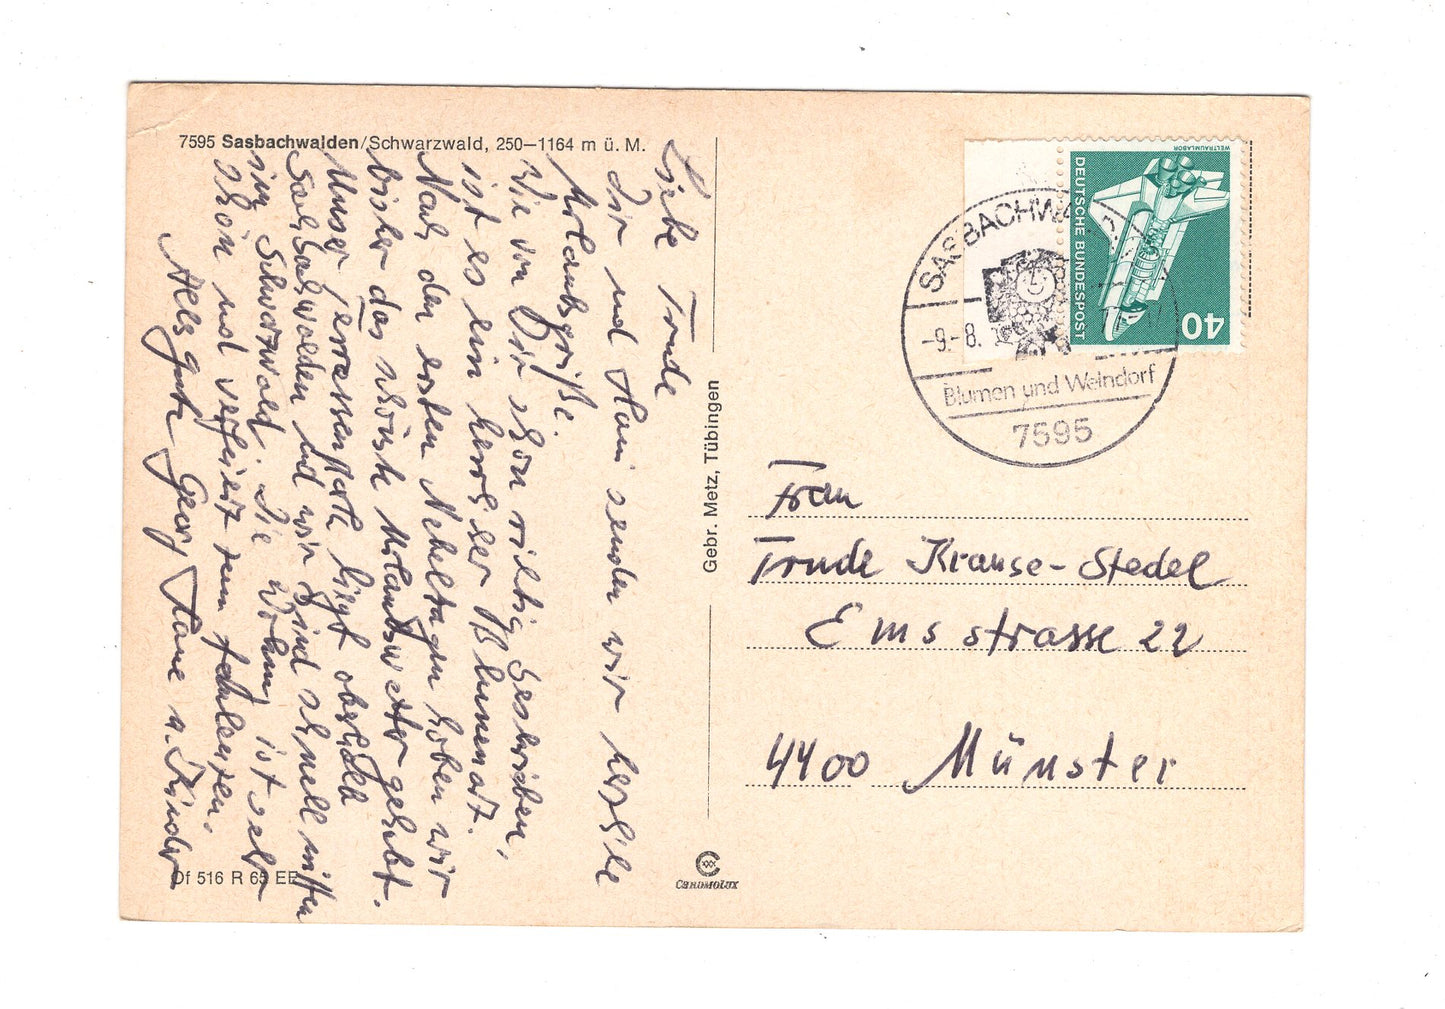 7595 Sasbachwalden/Schwarzwald, 250–1164 m ü. M.
Liebe Trude
Dir und Hani senden wir herzliche
Urlaubsgrüße.
Wie von Dir schon richtig geschrieben,
ist es ein herrlicher Blumenort.
Nach den ersten Nebeltagen haben wir
bisher das schönste Urlaubswetter gehabt.
Unser Terrassenpark liegt oberhalb
Sasbachwalden und wir sind schnell mitten
im Schwarzwald. Die Wohnung ist sehr
schön und verführt zum faulenzen.
Alles gute Georg, Hane u. Kinder
Of 516 R 65 EE
Gebr. Metz, Tübingen
CHROMOLUX
SASBACHWA
-9.-8.
Blumen und Weindorf
7595
WELTRAUMLABOR
DEUTSCHE BUNDESPOST
40
Frau
Trude Krause-Stedel
Emsstrasse 22
4400 Münster